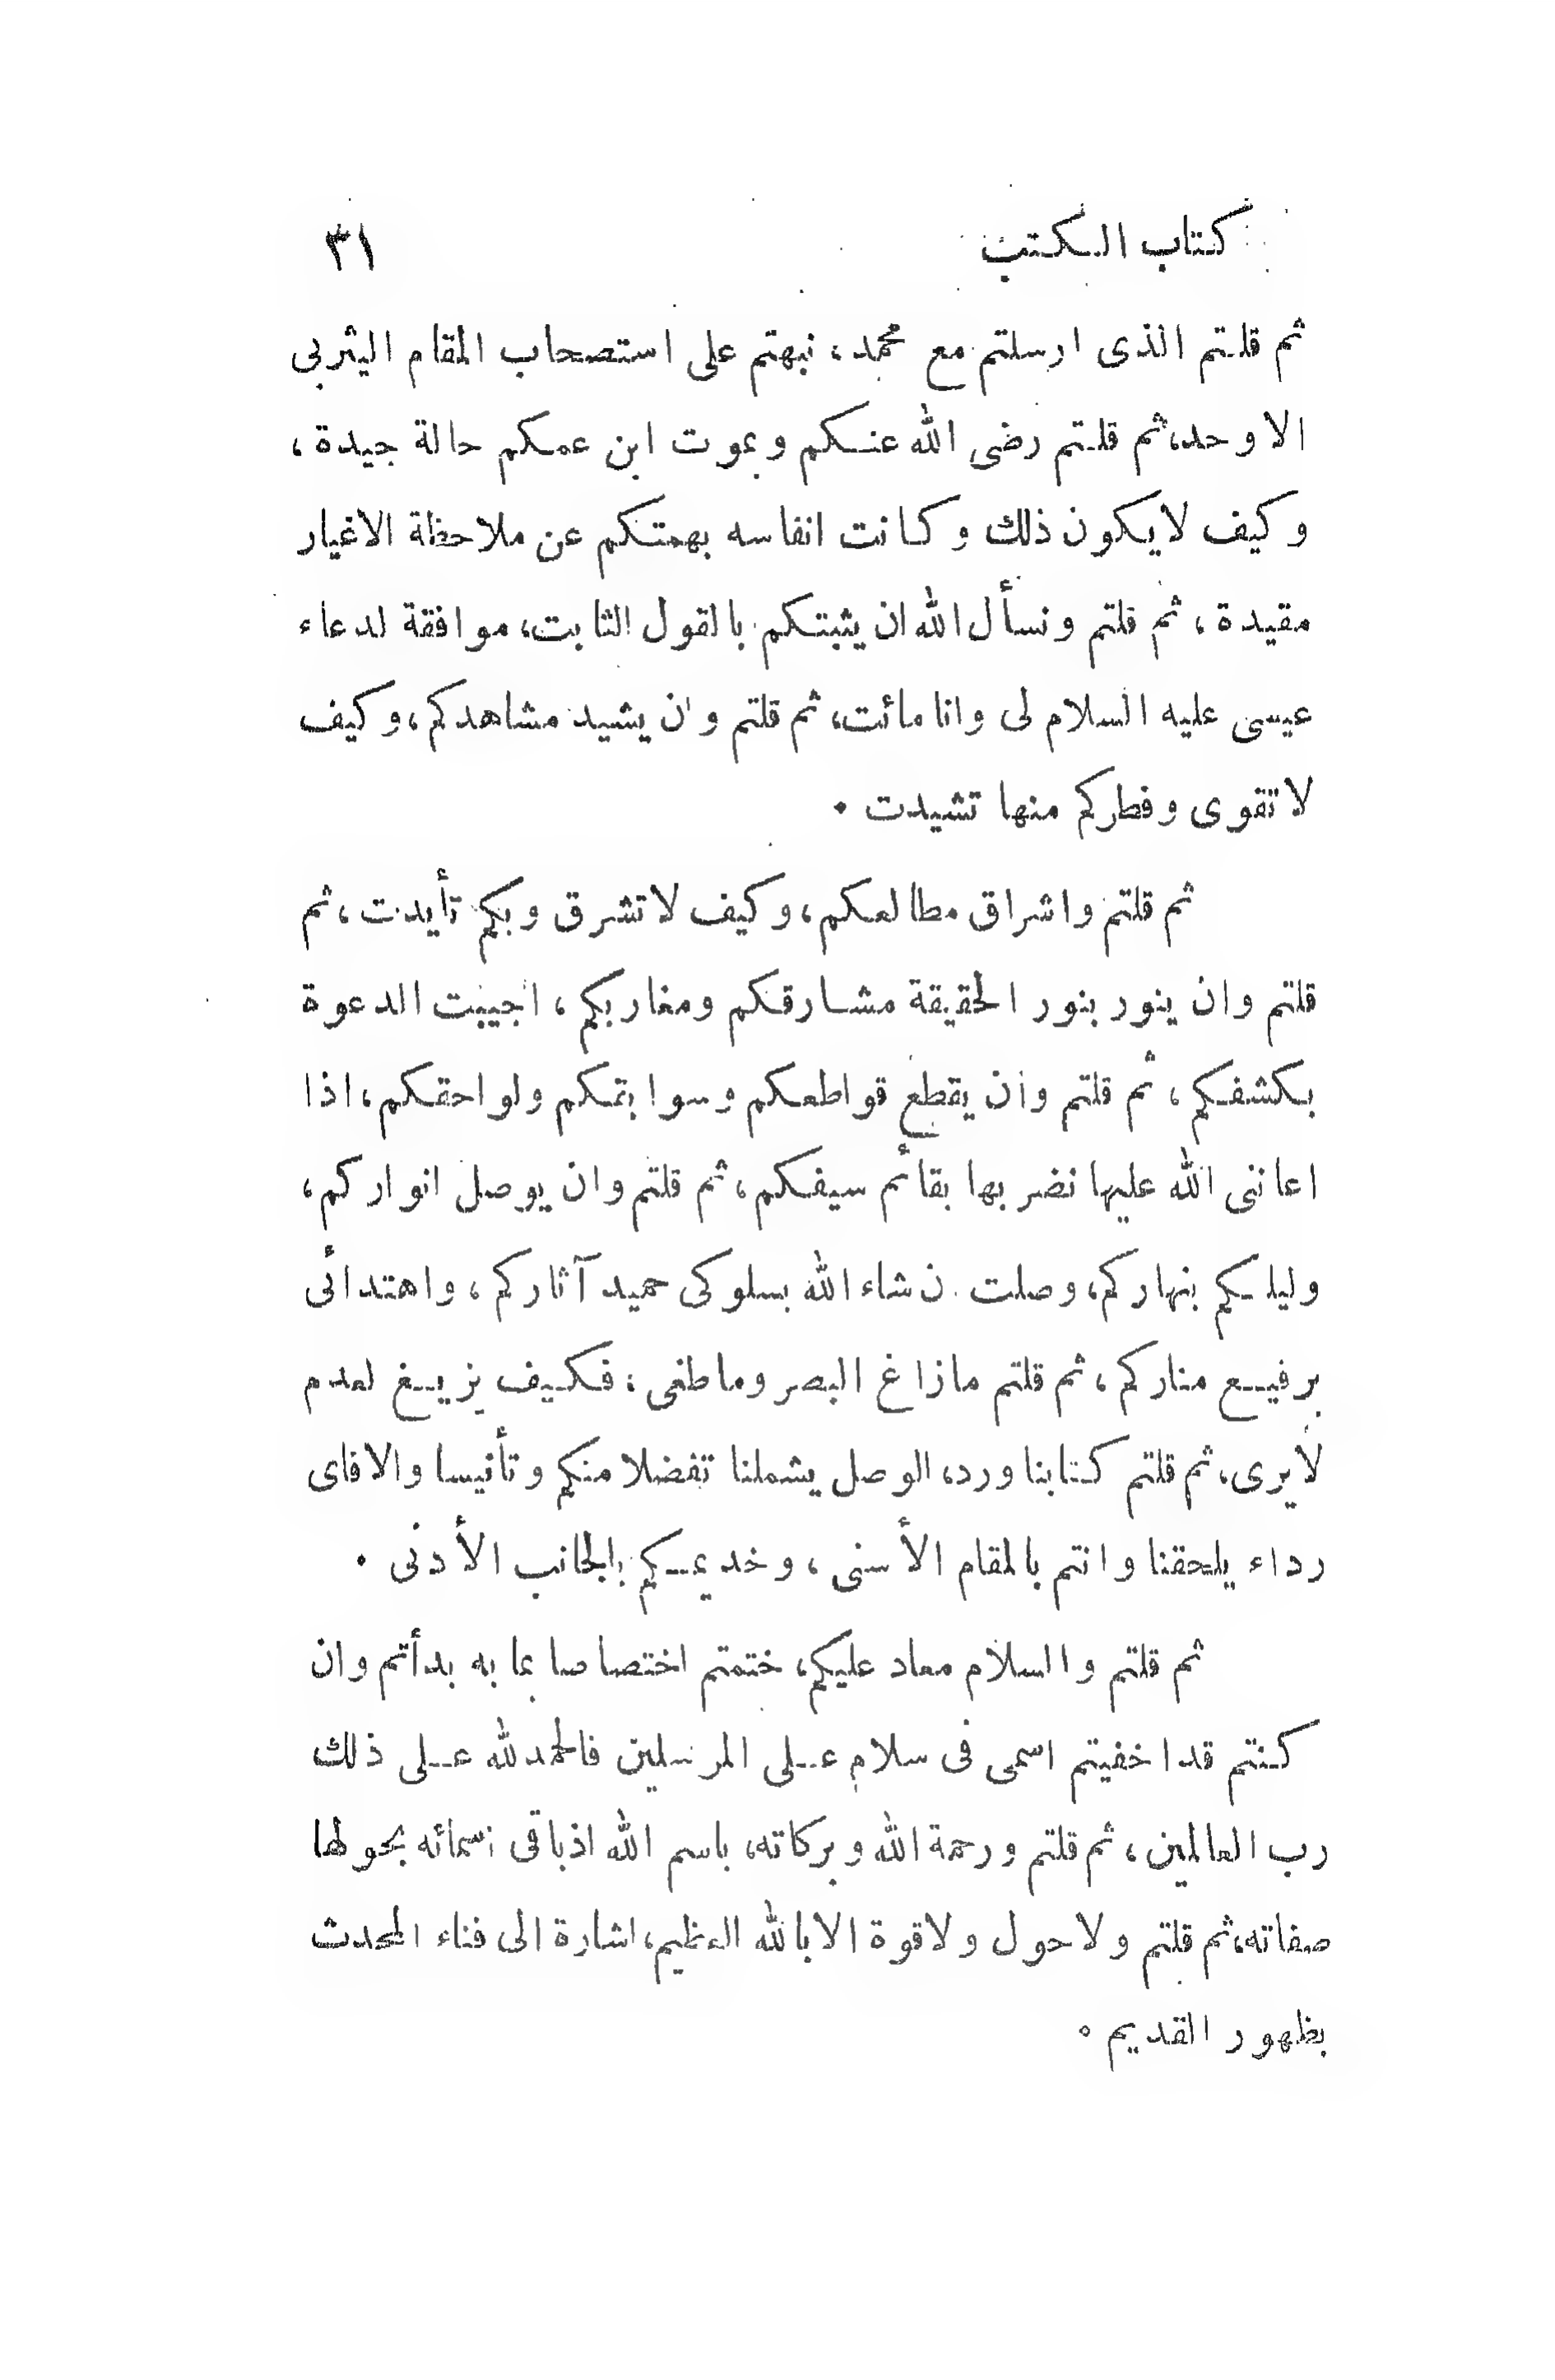 كتاب الكتب ٣١
ثم قلتم الذى ارسلتم مع محمد، نبهتم على استصحاب المقام اليثربى
الاوحد، ثم قلتم رضى الله عنكم وبموت ابن عمكم حالة جيدة،
وكيف لايكون ذلك وكانت انفاسه بهمتكم عن ملاحظة الاغيار
مقيدة، ثم قلتم ونسأل الله ان يثبتكم بالقول الثابت، موافقة لدعاء
عيسى عليه السلام لى وانا مائت، ثم قلتم وان يشيد مشاهدكم، وكيف
لا تقوى وفطركم منها تشيدت ٠
ثم قلتم واشراق مطالعكم، وكيف لا تشرق وبكم تأيدت، ثم
قلتم وان ينور بنور الحقيقة مشارقكم ومغاربكم، اجيبت الدعوة
بكشفكم، ثم قلتم وان يقطع قواطعكم وسوابقكم ولواحقكم، اذا
اعاننى الله عليها نضربها بقائم سيفكم، ثم قلتم وان يوصل انواركم،
وليلكم بنهاركم، وصلت ن شاء الله بسلوكى حميد آثاركم، واهتدائى
برفيع مناركم، ثم قلتم مازاغ البصر وماطغى، فكيف يزيغ لعدم
لايرى، ثم قلتم كتابنا ورد، الوصل يشملنا تفضلا منكم وتأنيسا والافاى
رداء يلحقنا وانتم بالمقام الأسنى، وخديمكم بالجانب الأدنى ٠
ثم قلتم والسلام معاد عليكم، ختمتم اختصاصا بما به بدأتم وان
كنتم قد اخفيتم اسمى فى سلام على المرسلين فالحمد لله على ذلك
رب العالمين، ثم قلتم ورحمة الله وبركاته، باسم الله اذباقى اسمائه بحولها
صفاته، ثم قلتم ولا حول ولا قوة الا بالله العظيم، اشارة الى فناء المحدث
بظهور القديم ٠